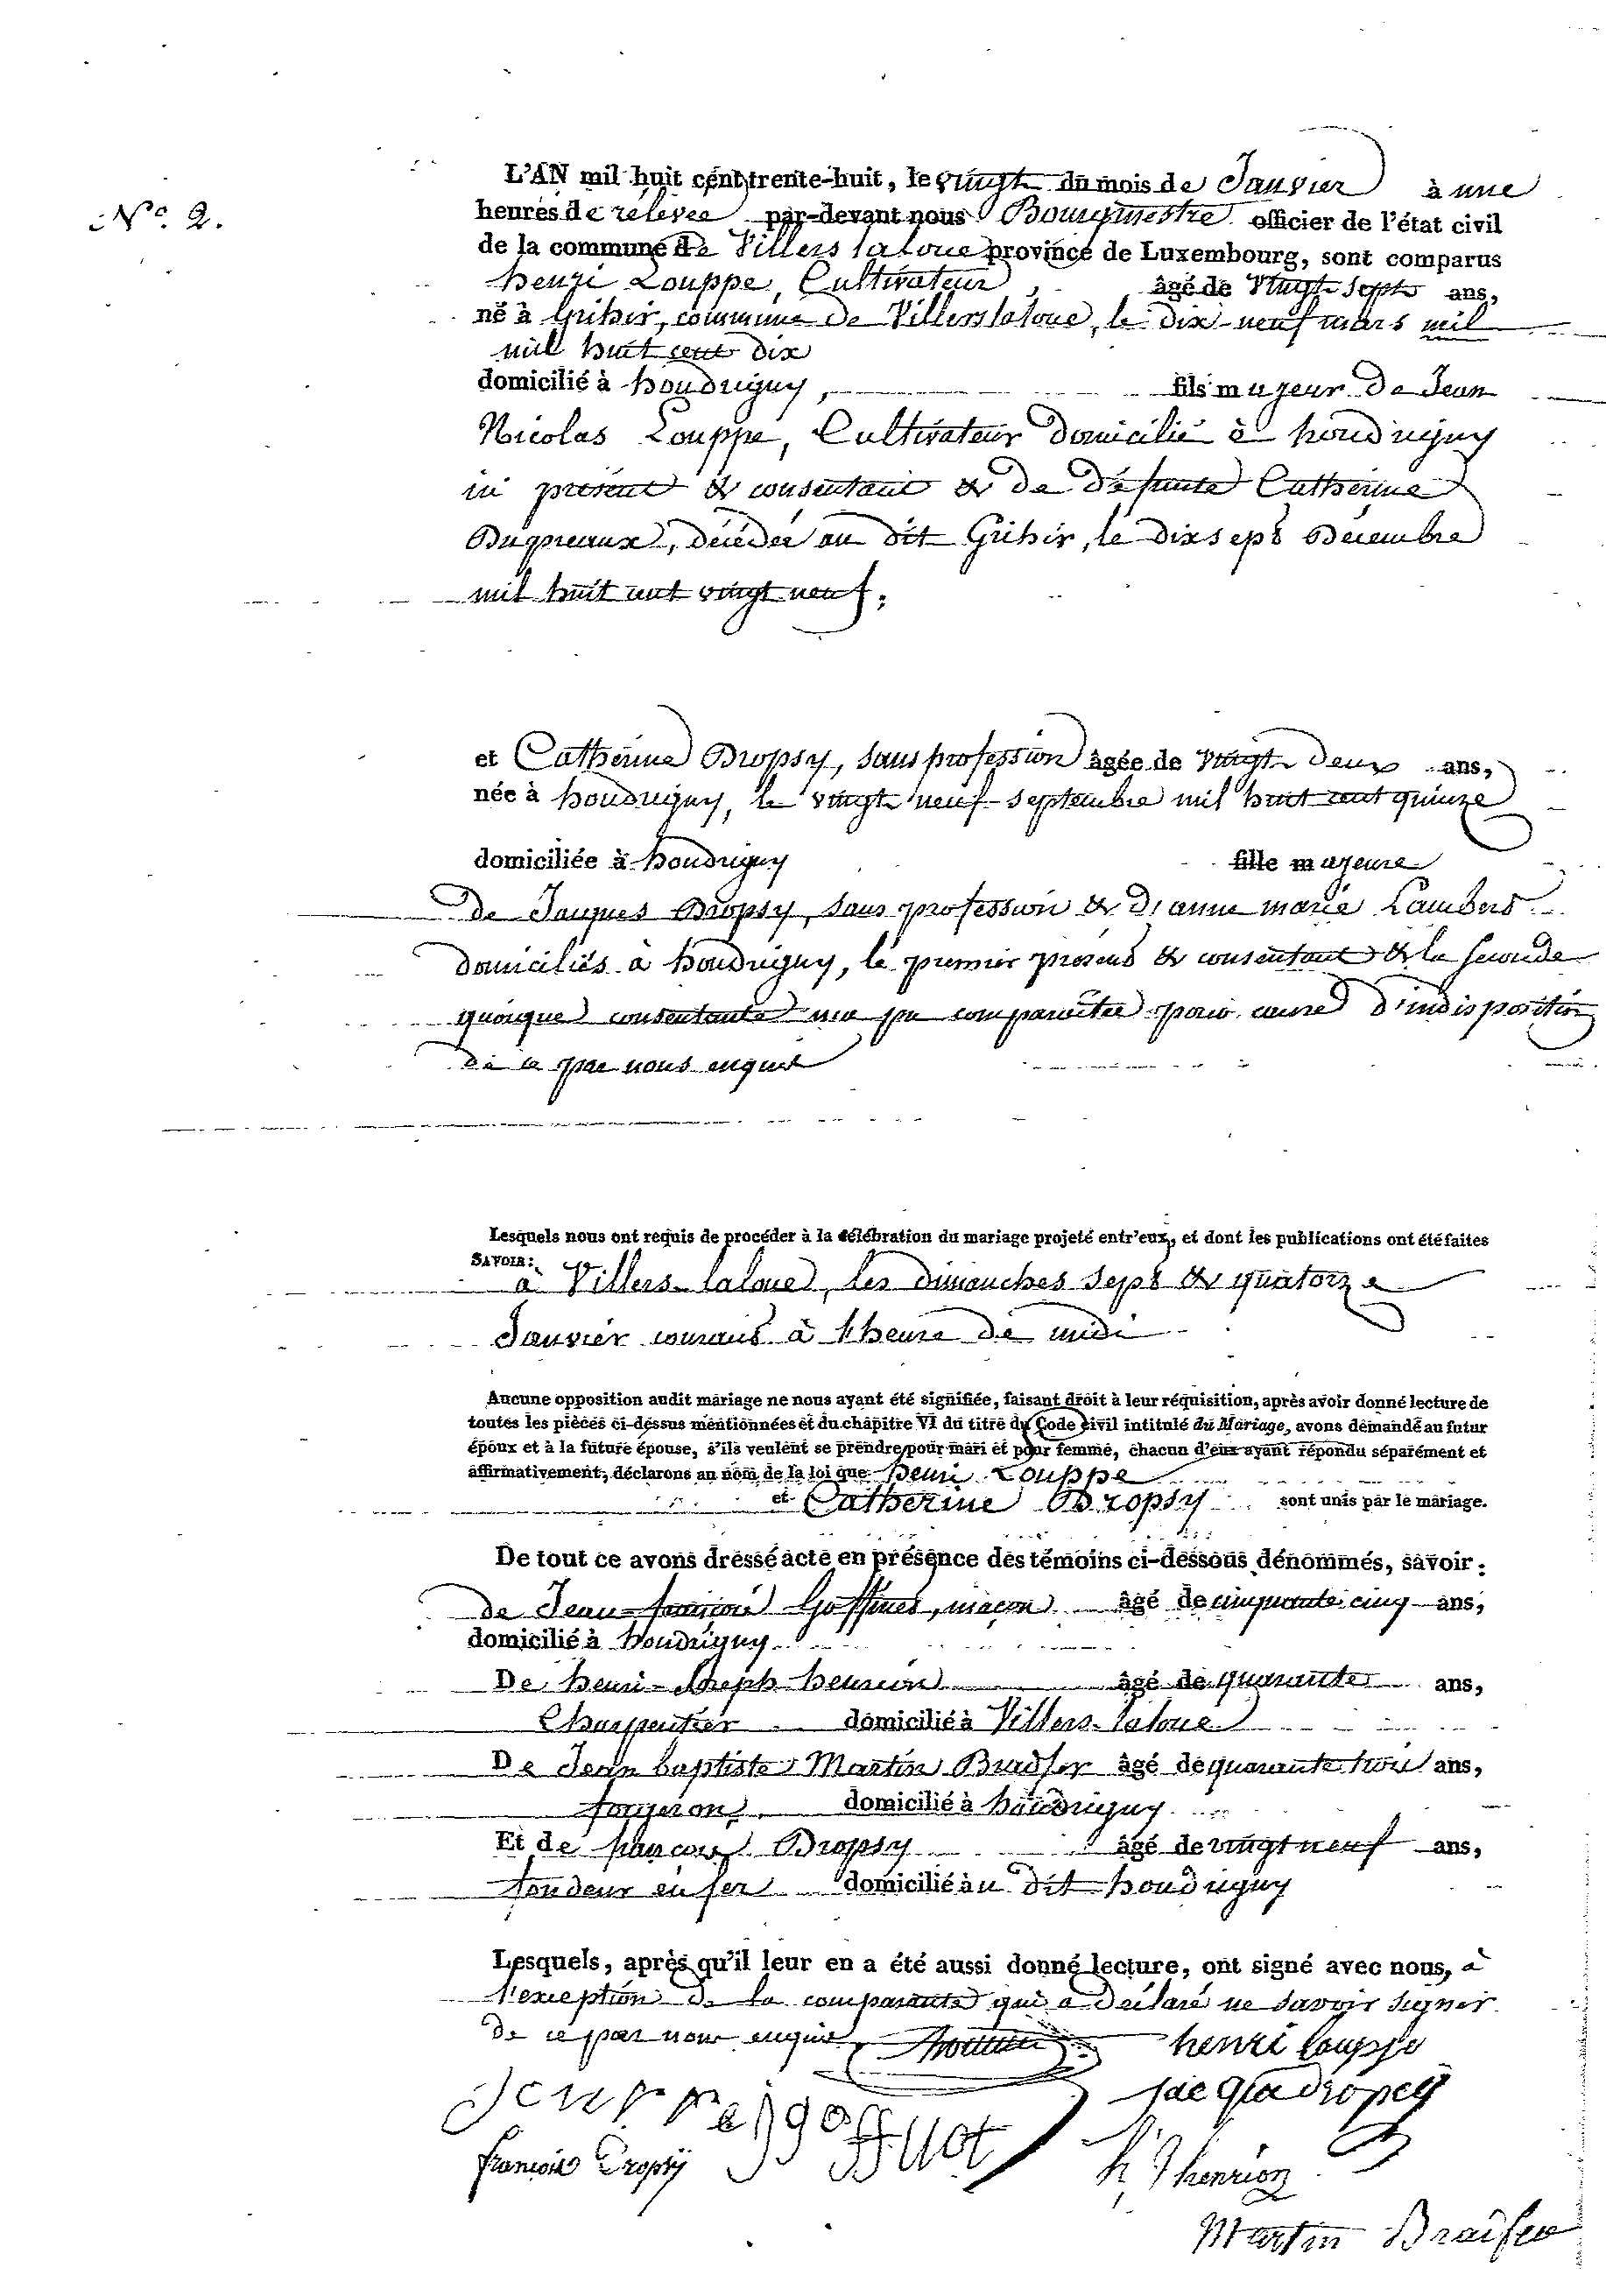 N° 2.
L'AN mil huit cent trente-huit, le vingt du mois de Janvier à une
heures de relevée par-devant nous Bourgmestre officier de l'état civil
de la commune de Villers laloue province de Luxembourg, sont comparus
henri Louppe, Cultivateur, âgé de Vingt sept ans,
né à Grihir, commune de Villerslaloue, le dix-neuf mars mil
mil huit cent dix
domicilié à houdrigny, fils majeur de Jean
Nicolas Louppe, Cultivateur domicilié à houdrigny
ici présent & consentant & de défunte Catherine
décédée au dit Grihir, le dix sept Décembre
mil huit cent vingt neuf;
et Catherine Dropsy, sans profession âgée de vingt deux ans,
née à houdrigny, le vingt neuf septembre mil huit cent quinze
domiciliée à houdrigny fille majeure
de Jacques Dropsy, sans profession & d'anne marie Lambert
domiciliés à houdrigny, le premier présent & consentant & la seconde
quoique consentante n'a pu comparaitre pour cause d'indisposition
de ce par nous enquit
Lesquels nous ont requis de procéder à la célébration du mariage projeté entr'eux, et dont les publications ont été faites
SAVOIR:
à Villers-laloue, les dimanches sept & quatorze
Janvier courant à l'heure de midi
Aucune opposition audit mariage ne nous ayant été signifiée, faisant droit à leur réquisition, après avoir donné lecture de
toutes les pièces ci-dessus mentionnées et du chapitre VI du titre du Code civil intitulé du Mariage, avons demandé au futur
époux et à la future épouse, s'ils veulent se prendre pour mari et pour femme, chacun d'eux ayant répondu séparément et
affirmativement, déclarons au nom de la loi que henri Louppe
et Catherine Dropsy sont unis par le mariage.
De tout ce avons dressé acte en présence des témoins ci-dessous dénommés, savoir:
de Jean-françois Goffinet, maçon âgé de cinquante cinq ans,
domicilié à houdrigny
De henri-Joseph henrion âgé de quarante ans,
Charpentier domicilié à Villers-laloue
De Jean baptiste Martin âgé de quarante trois ans,
forgeron, domicilié à houdrigny
Et de françois Dropsy âgé de vingt neuf ans,
fondeur en fer domicilié au dit houdrigny
Lesquels, après qu'il leur en a été aussi donné lecture, ont signé avec nous, à
l'exception de la comparante qui a déclaré ne savoir signer
de ce par nous enquise
henri louppe
françois Dropsÿ
h, J henrion
Martin